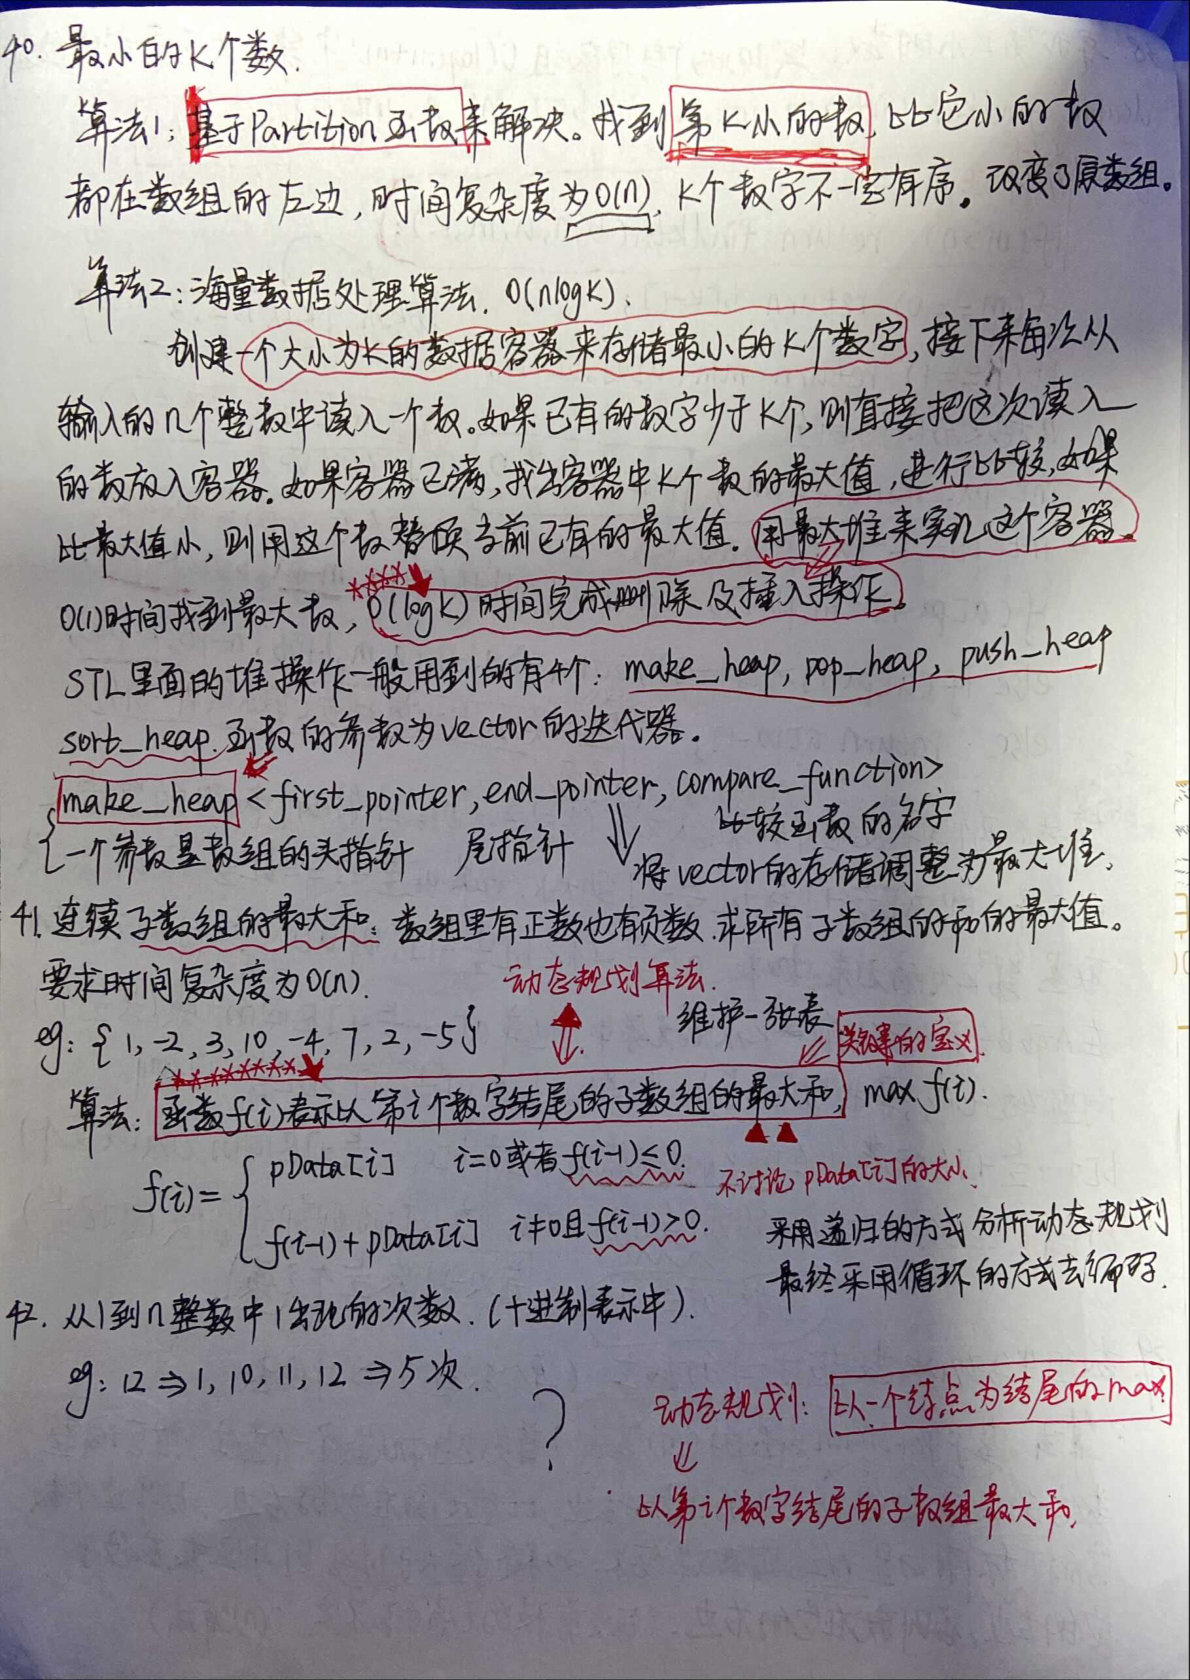 40. 最小的K个数.
算法1: 基于Partition函数来解决。找到第K小的数, 比它小的数
都在数组的左边, 时间复杂度为O(n), K个数字不一定有序。改变了原数组。
算法2: 海量数据处理算法. O(nlogK).
创建一个大小为K的数据容器来存储最小的K个数字, 接下来每次从
输入的n个整数中读入一个数。如果已有的数字少于K个, 则直接把这次读入
的数放入容器。如果容器已满, 找出容器中K个数的最大值, 进行比较, 如果
比最大值小, 则用这个数替换当前已有的最大值. 用最大堆来实现这个容器。
O(1)时间找到最大数, O(logK)时间完成删除及插入操作。
STL里面的堆操作一般用到的有4个: make_heap, pop_heap, push_heap
sort_heap. 函数的参数为vector的迭代器。
make_heap <first_pointer, end_pointer, compare_function>
一个参数是数组的头指针 尾指针 比较函数的名字
将vector的存储调整为最大堆.
41. 连续子数组的最大和: 数组里有正数也有负数. 求所有子数组的和的最大值。
要求时间复杂度为O(n). 动态规划算法.
eg: {1, -2, 3, 10, -4, 7, 2, -5} 维护一张表 关键的定义.
算法: 函数f(i)表示以第i个数字结尾的子数组的最大和, max f(i).
f(i) = { pData[i] i=0或者f(i-1)≤0. 不讨论pData[i]的大小.
f(i-1)+pData[i] i≠0且f(i-1)>0. 采用递归的方式分析动态规划
最终采用循环的方式去编码.
42. 从1到n整数中1出现的次数. (十进制表示中).
eg: 12⇒1, 10, 11, 12 ⇒5次. ?
动态规划: 以一个结点为结尾的max.
以第i个数字结尾的子数组最大和.